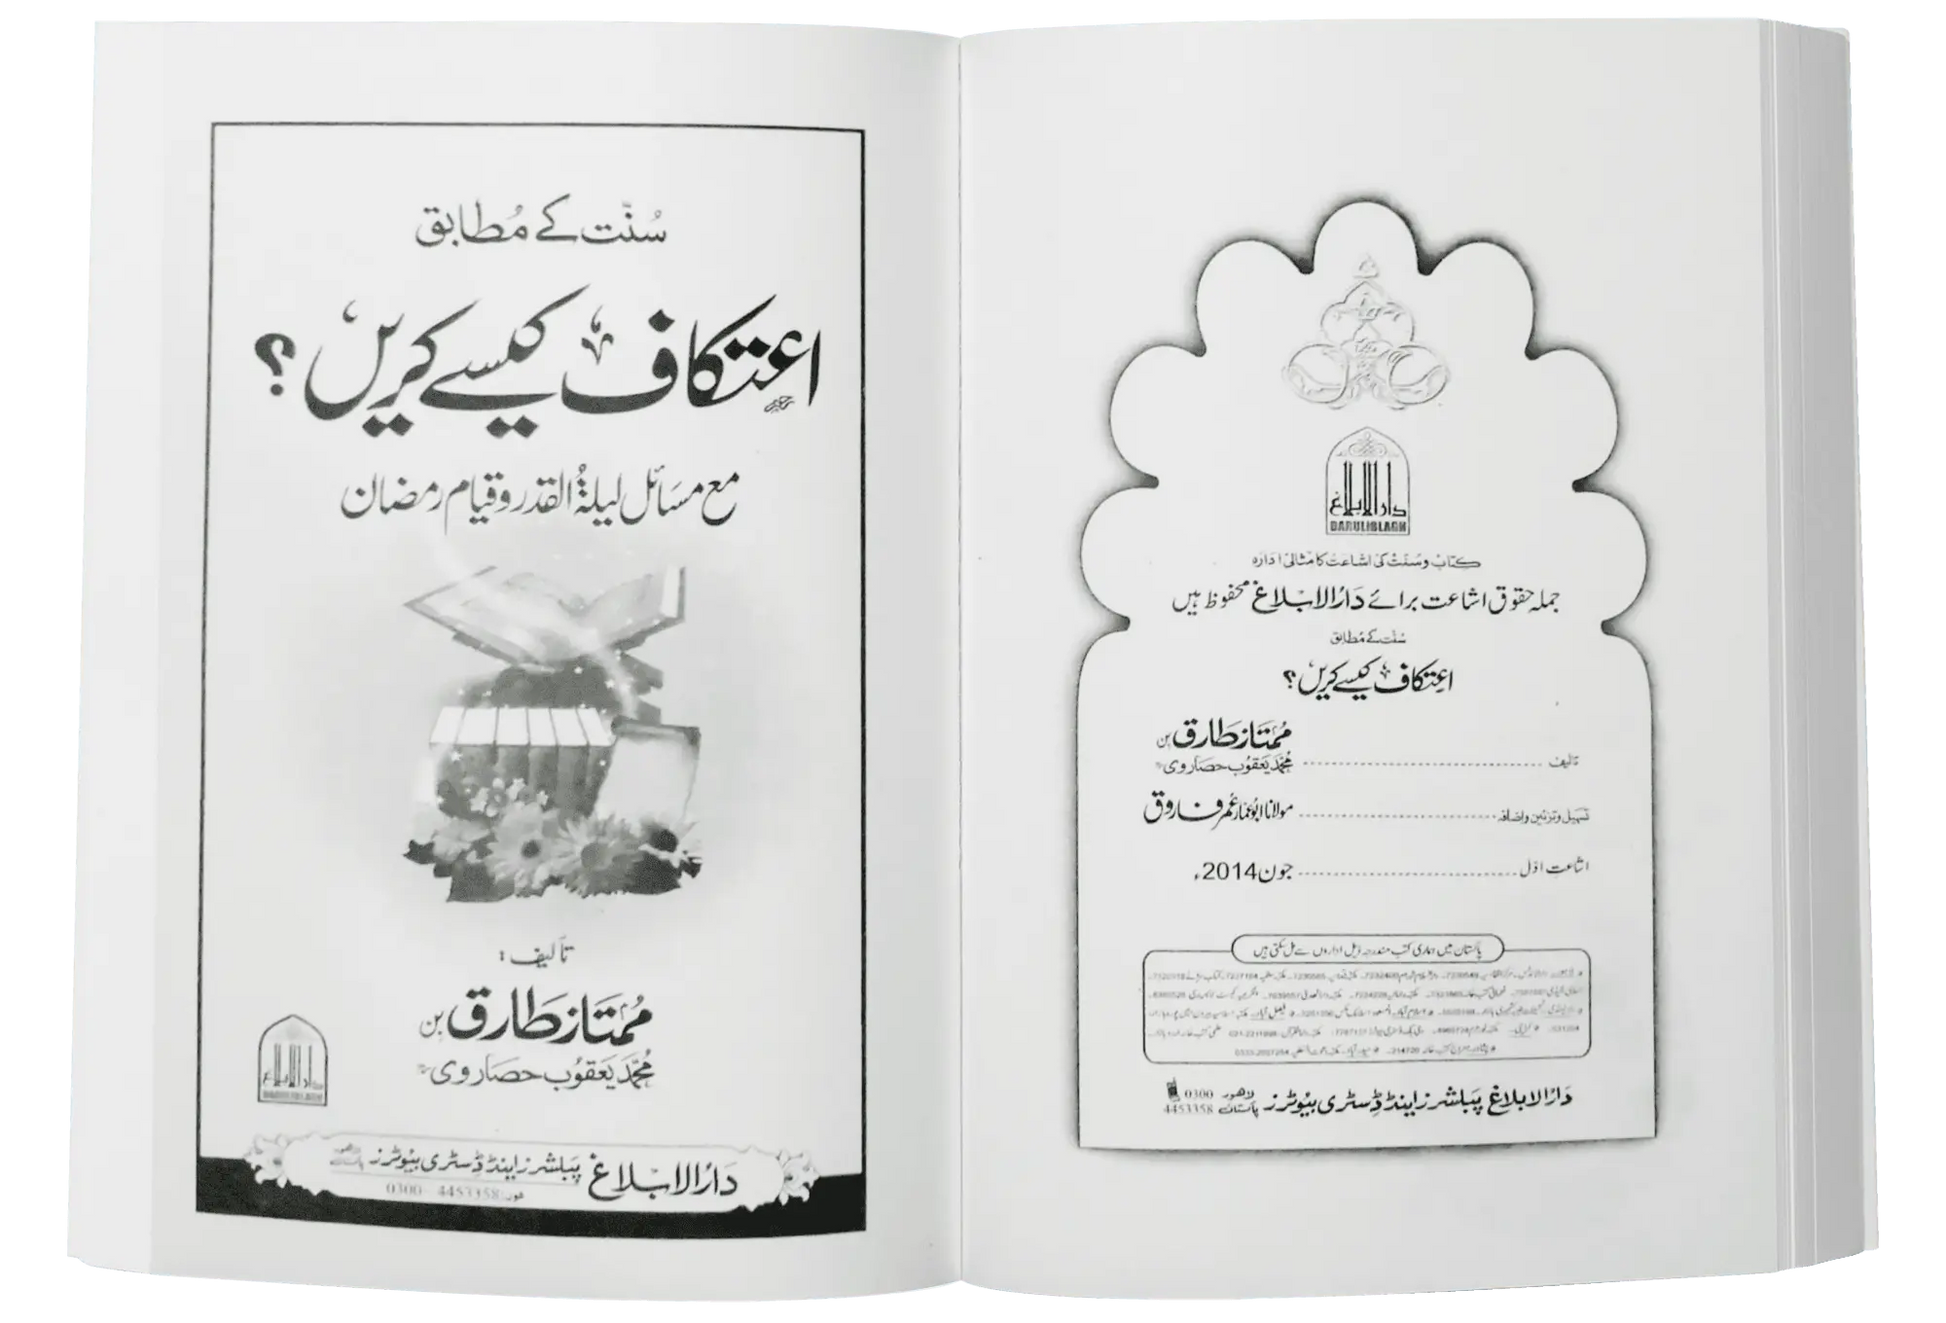 سُنّت کے مُطابق
اعتکاف کیسے کریں؟
مع مسائل لیلۃُ القدر و قیام رمضان
تالیف:
مُمتاز طارق بن
مُحمّد یَعقُوب حصاروی
دارالابلاغ
DARULIBLAGH
دارُالابلاغ پَبلشرز اینڈ ڈِسٹری بیُوٹرز لاہور پاکستان
0300 4453358
دارالابلاغ
DARULIBLAGH
کتاب و سُنّت کی اشاعت کا مثالی ادارہ
جملہ حقوق اشاعت برائے دَارُالابلاغ محفوظ ہیں
سُنّت کے مُطابق
اعتکاف کیسے کریں؟
تالیف ........ مُمتاز طارق بن
مُحمّد یَعقُوب حصاروی
تسہیل و تزئین و اضافہ ........ مولانا ابُوعمّار عُمر فاروق
اشاعت اوّل ........ جون 2014ء
پاکستان میں ہماری کتب مندرجہ ذیل اداروں سے مل سکتی ہیں
دَارُالابلاغ پَبلشرز اینڈ ڈِسٹری بیُوٹرز لاہور پاکستان 0300 4453358